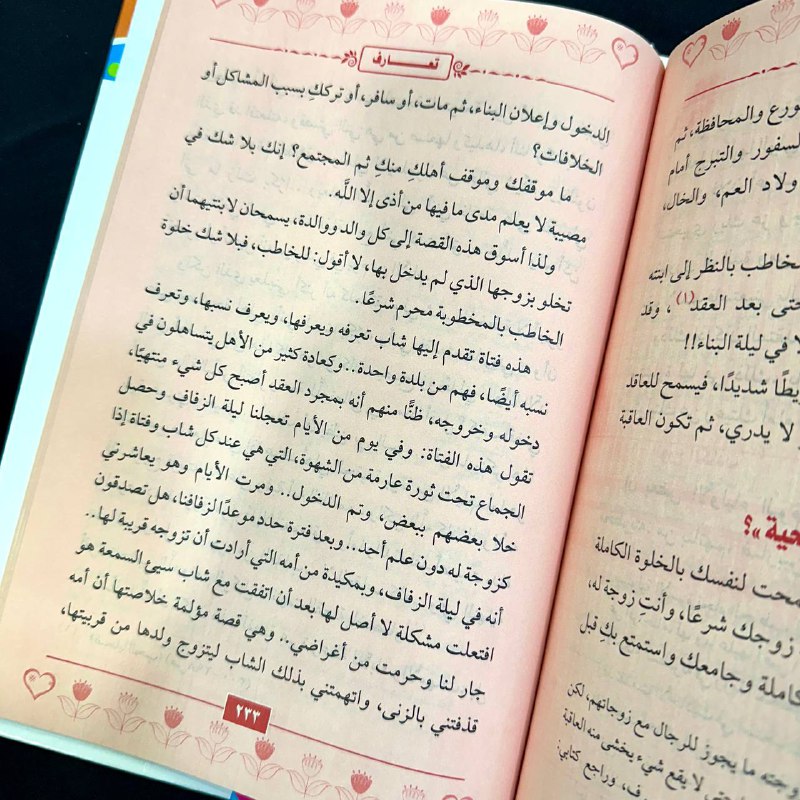 والمحافظة، ثم
والتبرج أمام
العم، والخال،
بالنظر إلى ابنته
حتى بعد العقد(١)، وقد
في ليلة البناء!!
شديدًا، فيسمح للعاقد
لا يدري، ثم تكون العاقبة
لنفسك بالخلوة الكاملة
زوجك شرعًا، وأنتِ زوجة له،
وجامعك واستمتع بكِ قبل
ما يجوز للرجال مع زوجاتهم، لكن
لا يقع شيء يخشى منه العاقبة
وراجع كتابي:
تعـــارف
الدخول وإعلان البناء، ثم مات، أو سافر، أو ترككِ بسبب المشاكل أو
الخلافات؟
ما موقفك وموقف أهلكِ منكِ ثم المجتمع؟ إنك بلا شك في
مصيبة لا يعلم مدى ما فيها من أذى إلا اللَّه.
ولذا أسوق هذه القصة إلى كل والد ووالدة، يسمحان لابنتيهما أن
تخلو بزوجها الذي لم يدخل بها، لا أقول: للخاطب، فبلا شك خلوة
الخاطب بالمخطوبة محرم شرعًا.
هذه فتاة تقدم إليها شاب تعرفه ويعرفها، ويعرف نسبها، وتعرف
نسبه أيضًا، فهم من بلدة واحدة.. وكعادة كثير من الأهل يتساهلون في
دخوله وخروجه، ظنًّا منهم أنه بمجرد العقد أصبح كل شيء منتهيًا،
تقول هذه الفتاة: وفي يوم من الأيام تعجلنا ليلة الزفاف وحصل
الجماع تحت ثورة عارمة من الشهوة، التي هي عند كل شاب وفتاة إذا
خلا بعضهم ببعض، وتم الدخول.. ومرت الأيام وهو يعاشرني
كزوجة له دون علم أحد.. وبعد فترة حدد موعدًا لزفافنا، هل تصدقون
أنه في ليلة الزفاف، وبمكيدة من أمه التي أرادت أن تزوجه قريبة لها..
افتعلت مشكلة لا أصل لها بعد أن اتفقت مع شاب سيئ السمعة هو
جار لنا وحرمت من أغراضي.. وهي قصة مؤلمة خلاصتها أن أمه
قذفتني بالزنى، واتهمتني بذلك الشاب ليتزوج ولدها من قريبتها،
٢٣٣